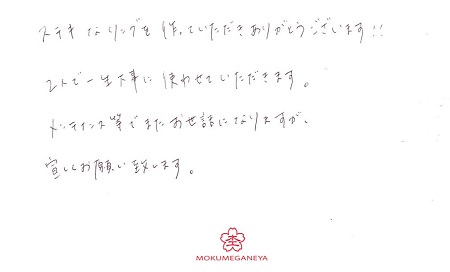 ステキなリングを作っていただきありがとうございます!!
2人で一生大事に使わせていただきます。
メンテナンス等でまたお世話になりますが、
宜しくお願い致します。
MOKUMEGANEYA